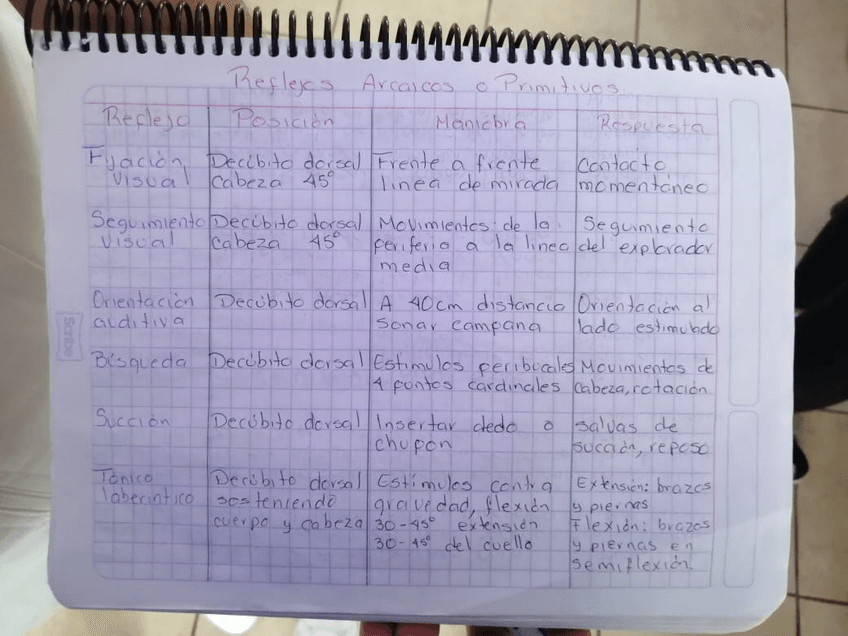 Reflejos Arcaicos o Primitivos
Reflejo Posición Maniobra Respuesta
Fijación Decúbito dorsal Frente a frente Contacto
visual cabeza 45° linea de mirada momentáneo
Seguimiento Decúbito dorsal Movimientos de la Seguimiento
visual cabeza 45° periferia a la linea del explorador
media
Orientación Decúbito dorsal A 40cm distancia Orientación al
auditiva sonar campana lado estimulado
Búsqueda Decúbito dorsal Estimulos peribucales Movimientos de
4 puntos cardinales cabeza, rotación
Succión Decúbito dorsal Insertar dedo o salvas de
chupon succión, reposo
Tónico Decúbito dorsal Estímulos contra Extensión: brazos
laberintico sosteniendo gravedad, flexión y piernas
cuerpo y cabeza 30-45° extensión Flexión: brazos
30-45° del cuello y piernas en
semiflexión.
Scribe